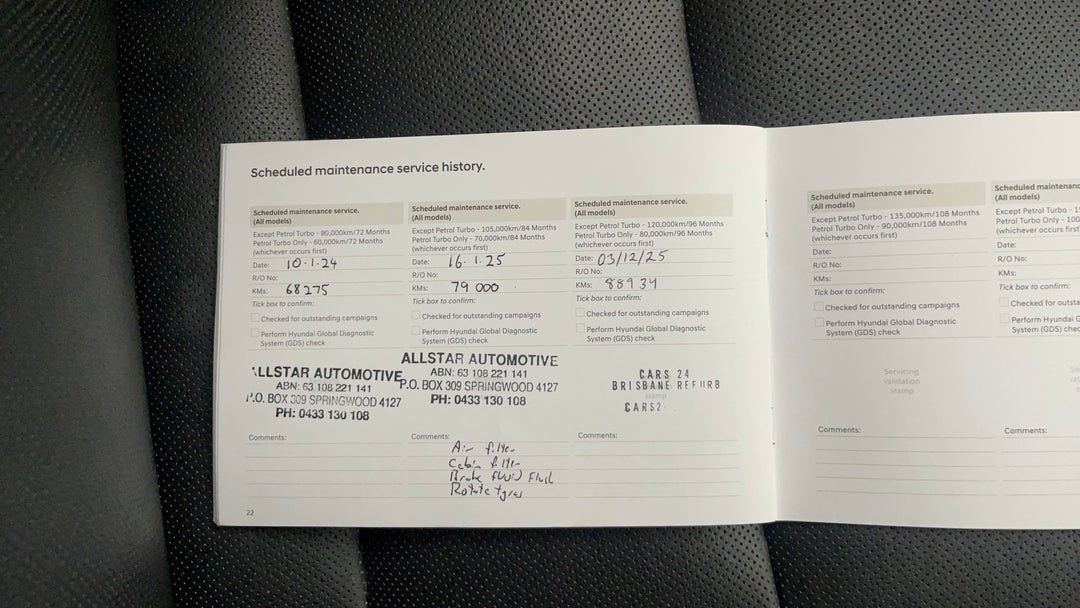 Scheduled maintenance service history.
Scheduled maintenance service.
(All models)
Except Petrol Turbo - 90,000km/72 Months
Petrol Turbo Only - 60,000km/72 Months
(whichever occurs first)
Date: 10.1.24
R/O No:
KMs: 68275
Tick box to confirm:
Checked for outstanding campaigns
Perform Hyundai Global Diagnostic
System (GDS) check
LLSTAR AUTOMOTIVE
ABN: 63 108 221 141
P.O. BOX 309 SPRINGWOOD 4127
PH: 0433 130 108
Comments:
22
Scheduled maintenance service.
(All models)
Except Petrol Turbo - 105,000km/84 Months
Petrol Turbo Only - 70,000km/84 Months
(whichever occurs first)
Date: 16.1.25
R/O No:
KMs: 79 000
Tick box to confirm:
Checked for outstanding campaigns
Perform Hyundai Global Diagnostic
System (GDS) check
ALLSTAR AUTOMOTIVE
ABN: 63 108 221 141
P.O. BOX 309 SPRINGWOOD 4127
PH: 0433 130 108
Comments:
Air filter
Cabin filter
Brake fluid Flush
Rotate tyres
Scheduled maintenance service.
(All models)
Except Petrol Turbo - 120,000km/96 Months
Petrol Turbo Only - 80,000km/96 Months
(whichever occurs first)
Date: 03/12/25
R/O No:
KMs: 88934
Tick box to confirm:
Checked for outstanding campaigns
Perform Hyundai Global Diagnostic
System (GDS) check
CARS 24
BRISBANE REFURB
stamp
CARS2
Comments:
Scheduled maintenance service.
(All models)
Except Petrol Turbo - 135,000km/108 Months
Petrol Turbo Only - 90,000km/108 Months
(whichever occurs first)
Date:
R/O No:
KMs:
Tick box to confirm:
Checked for outstanding campaigns
Perform Hyundai Global Diagnostic
System (GDS) check
Servicing
validation
stamp
Comments:
Scheduled maintenanc
(All models)
Except Petrol Turbo - 1
Petrol Turbo Only - 100
(whichever occurs first)
Date:
R/O No:
KMs:
Tick box to confirm:
Checked for outsta
Perform Hyundai G
System (GDS) chec
Comments: